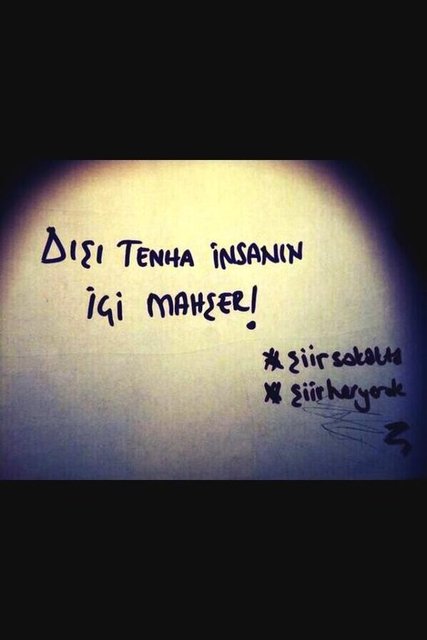 DIŞI TENHA İNSANIN
İÇİ MAHŞER!
#şiirsokakta
#şiirheryerde